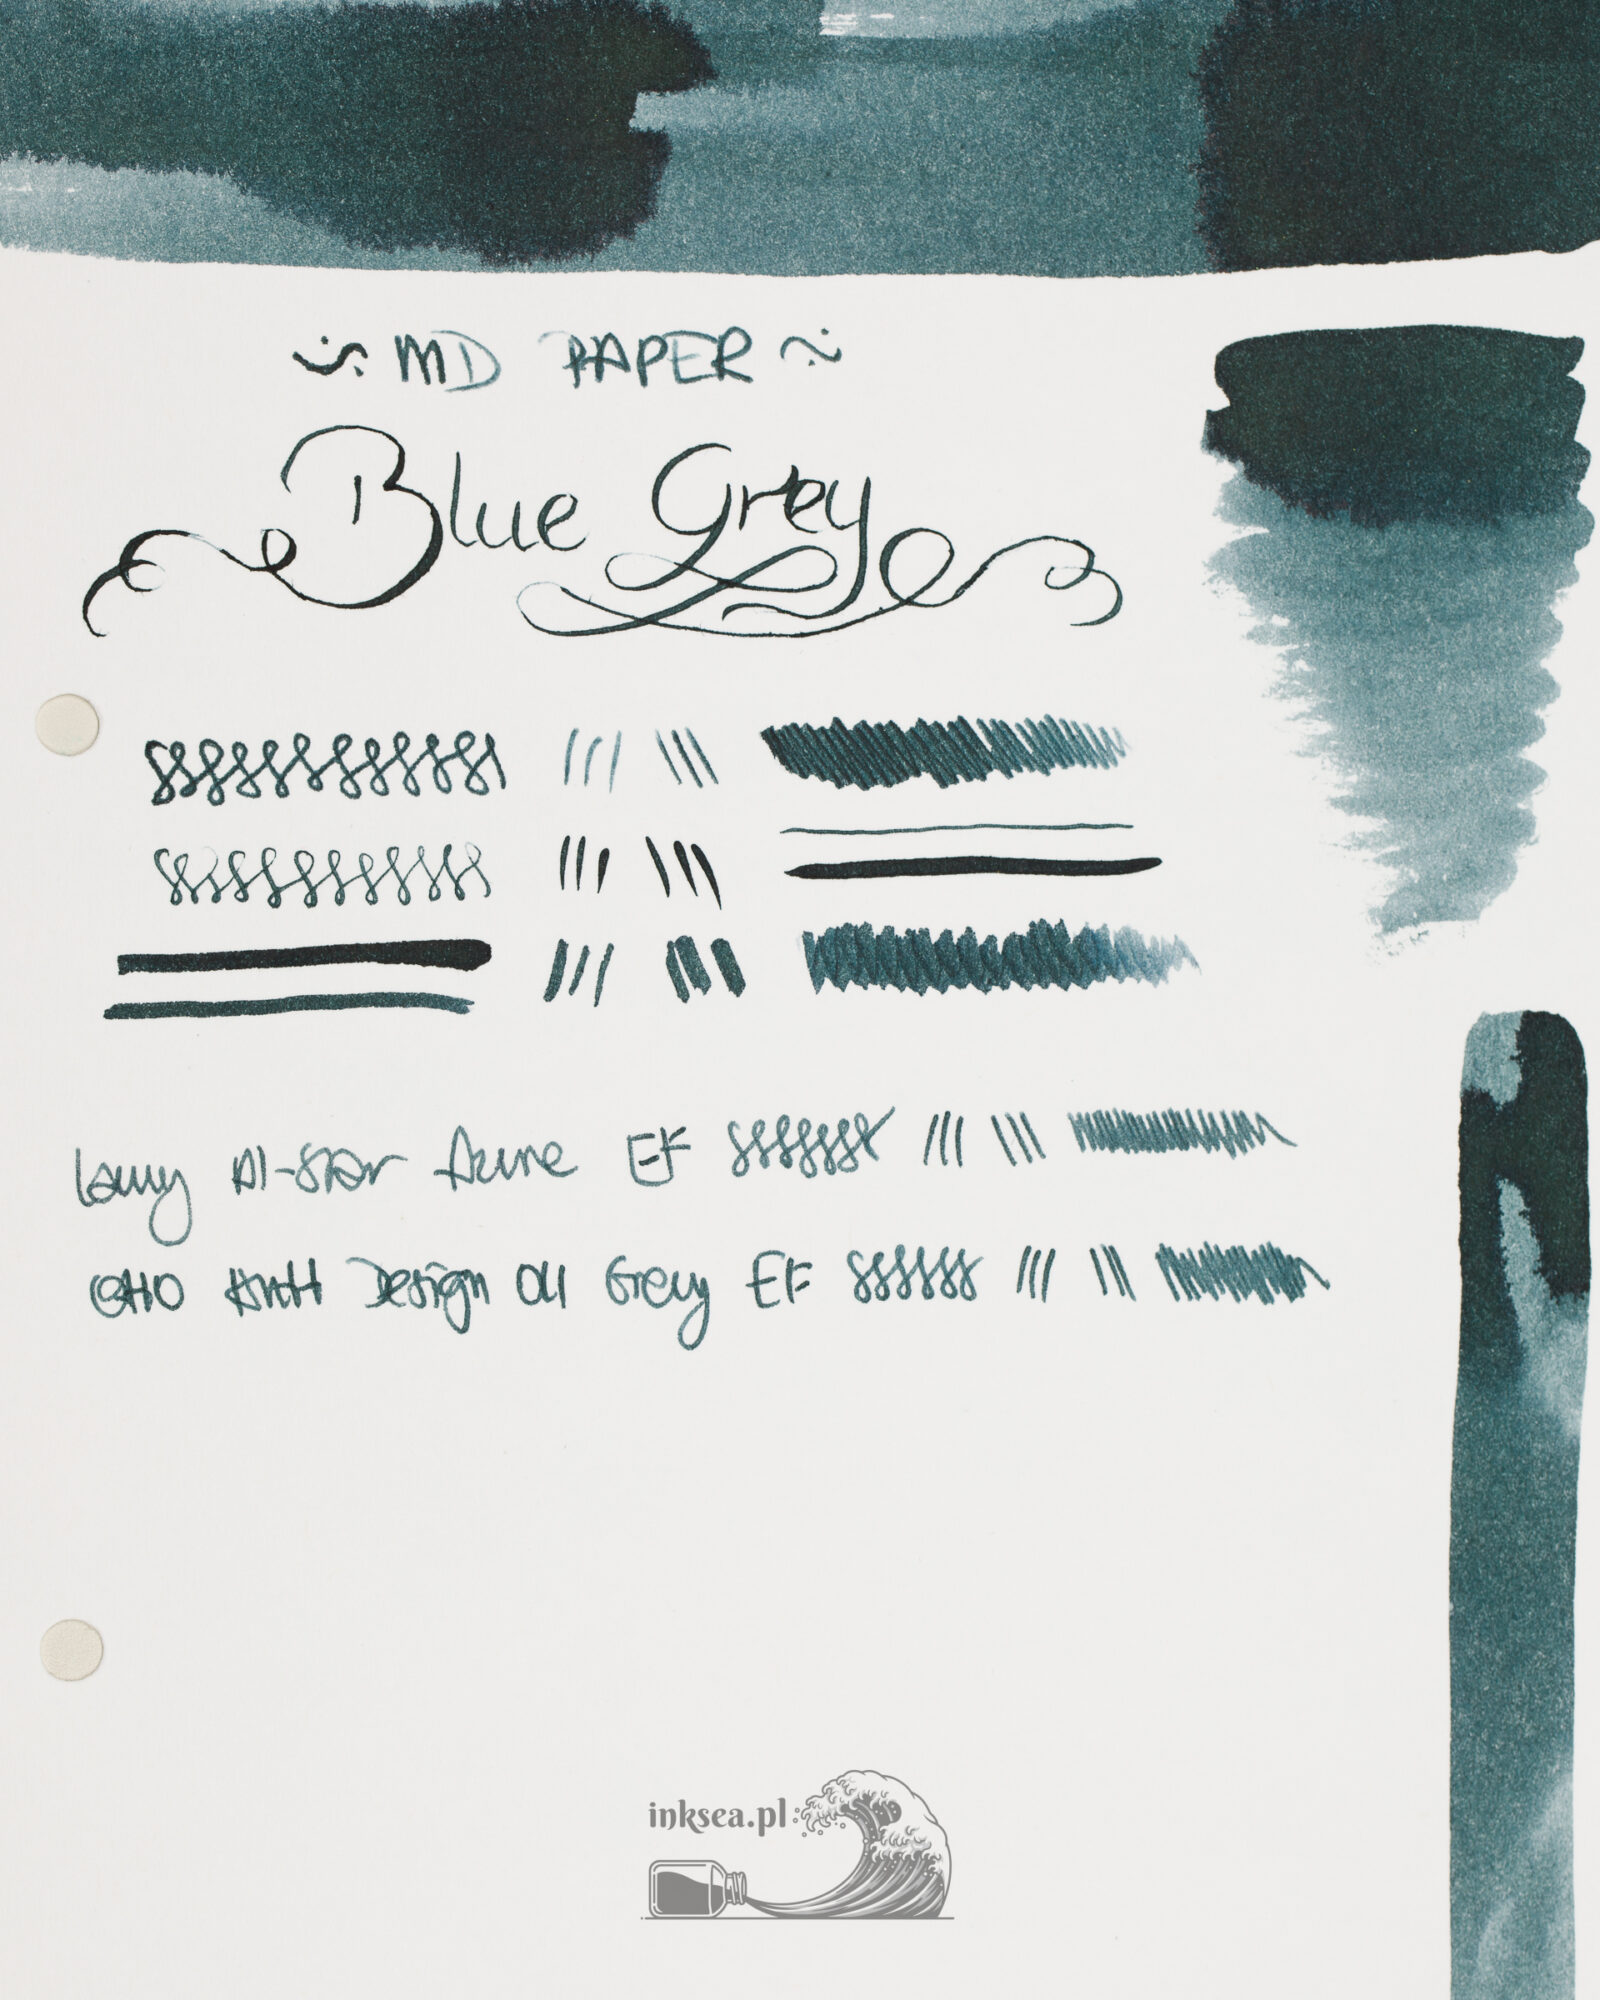 ~ MD PAPER ~
Blue Grey
Lamy Al-Star Azure EF
Otto Hutt Design 04 Grey EF
inksea.pl